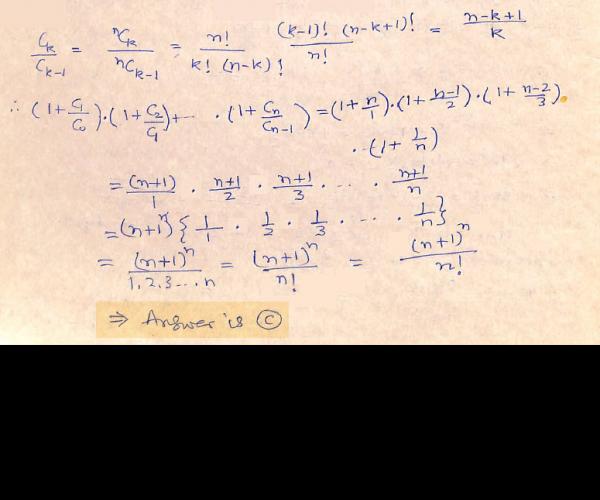 C_k/C_{k-1} = ⁿC_k/ⁿC_{k-1} = n!/(k! (n-k)!) (k-1)! (n-k+1)!/n! = (n-k+1)/k
∴ (1+C₁/C₀)·(1+C₂/C₁)+··· ·(1+C_n/C_{n-1}) = (1+n/1)·(1+(n-1)/2)·(1+(n-2)/3).
··(1+1/n)
= (n+1)/1 · (n+1)/2 · (n+1)/3 · ··· · (n+1)/n
= (n+1)ⁿ {1/1 · 1/2 · 1/3 · ··· · 1/n}
= (n+1)ⁿ/(1.2.3...n) = (n+1)ⁿ/n! = (n+1)ⁿ/n!
⇒ Answer is ⓒ